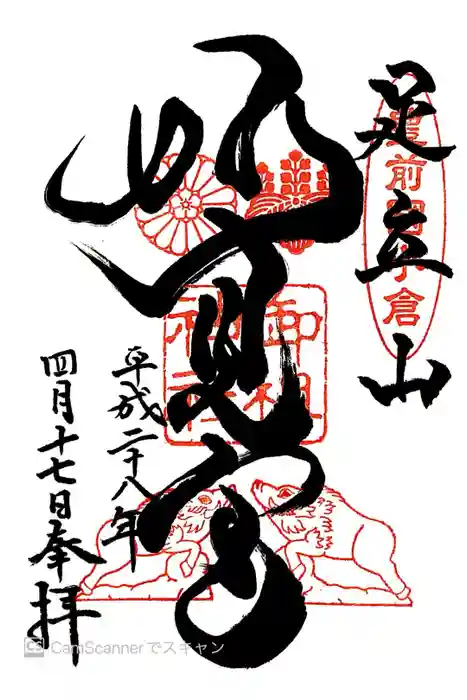 足立山
豊前国小倉
妙見宮
御祖神社
平成二十八年
四月十七日奉拝
CS CamScannerでスキャン